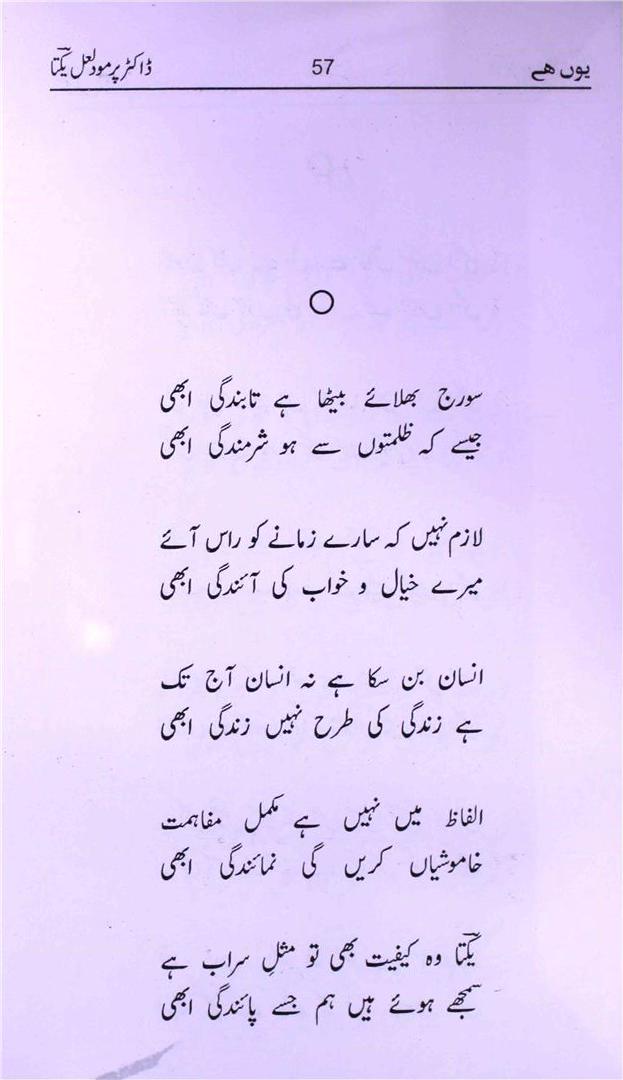 یوں ھے 57 ڈاکٹر پرمود لعل یکتاؔ
سورج بھلائے بیٹھا ہے تابندگی ابھی
جیسے کہ ظلمتوں سے ہو شرمندگی ابھی
لازم نہیں کہ سارے زمانے کو راس آئے
میرے خیال و خواب کی آئندگی ابھی
انسان بن سکا ہے نہ انسان آج تک
ہے زندگی کی طرح نہیں زندگی ابھی
الفاظ میں نہیں ہے مکمل مفاہمت
خاموشیاں کریں گی نمائندگی ابھی
یکتاؔ وہ کیفیت بھی تو مثلِ سراب ہے
سمجھے ہوئے ہیں ہم جسے پائندگی ابھی